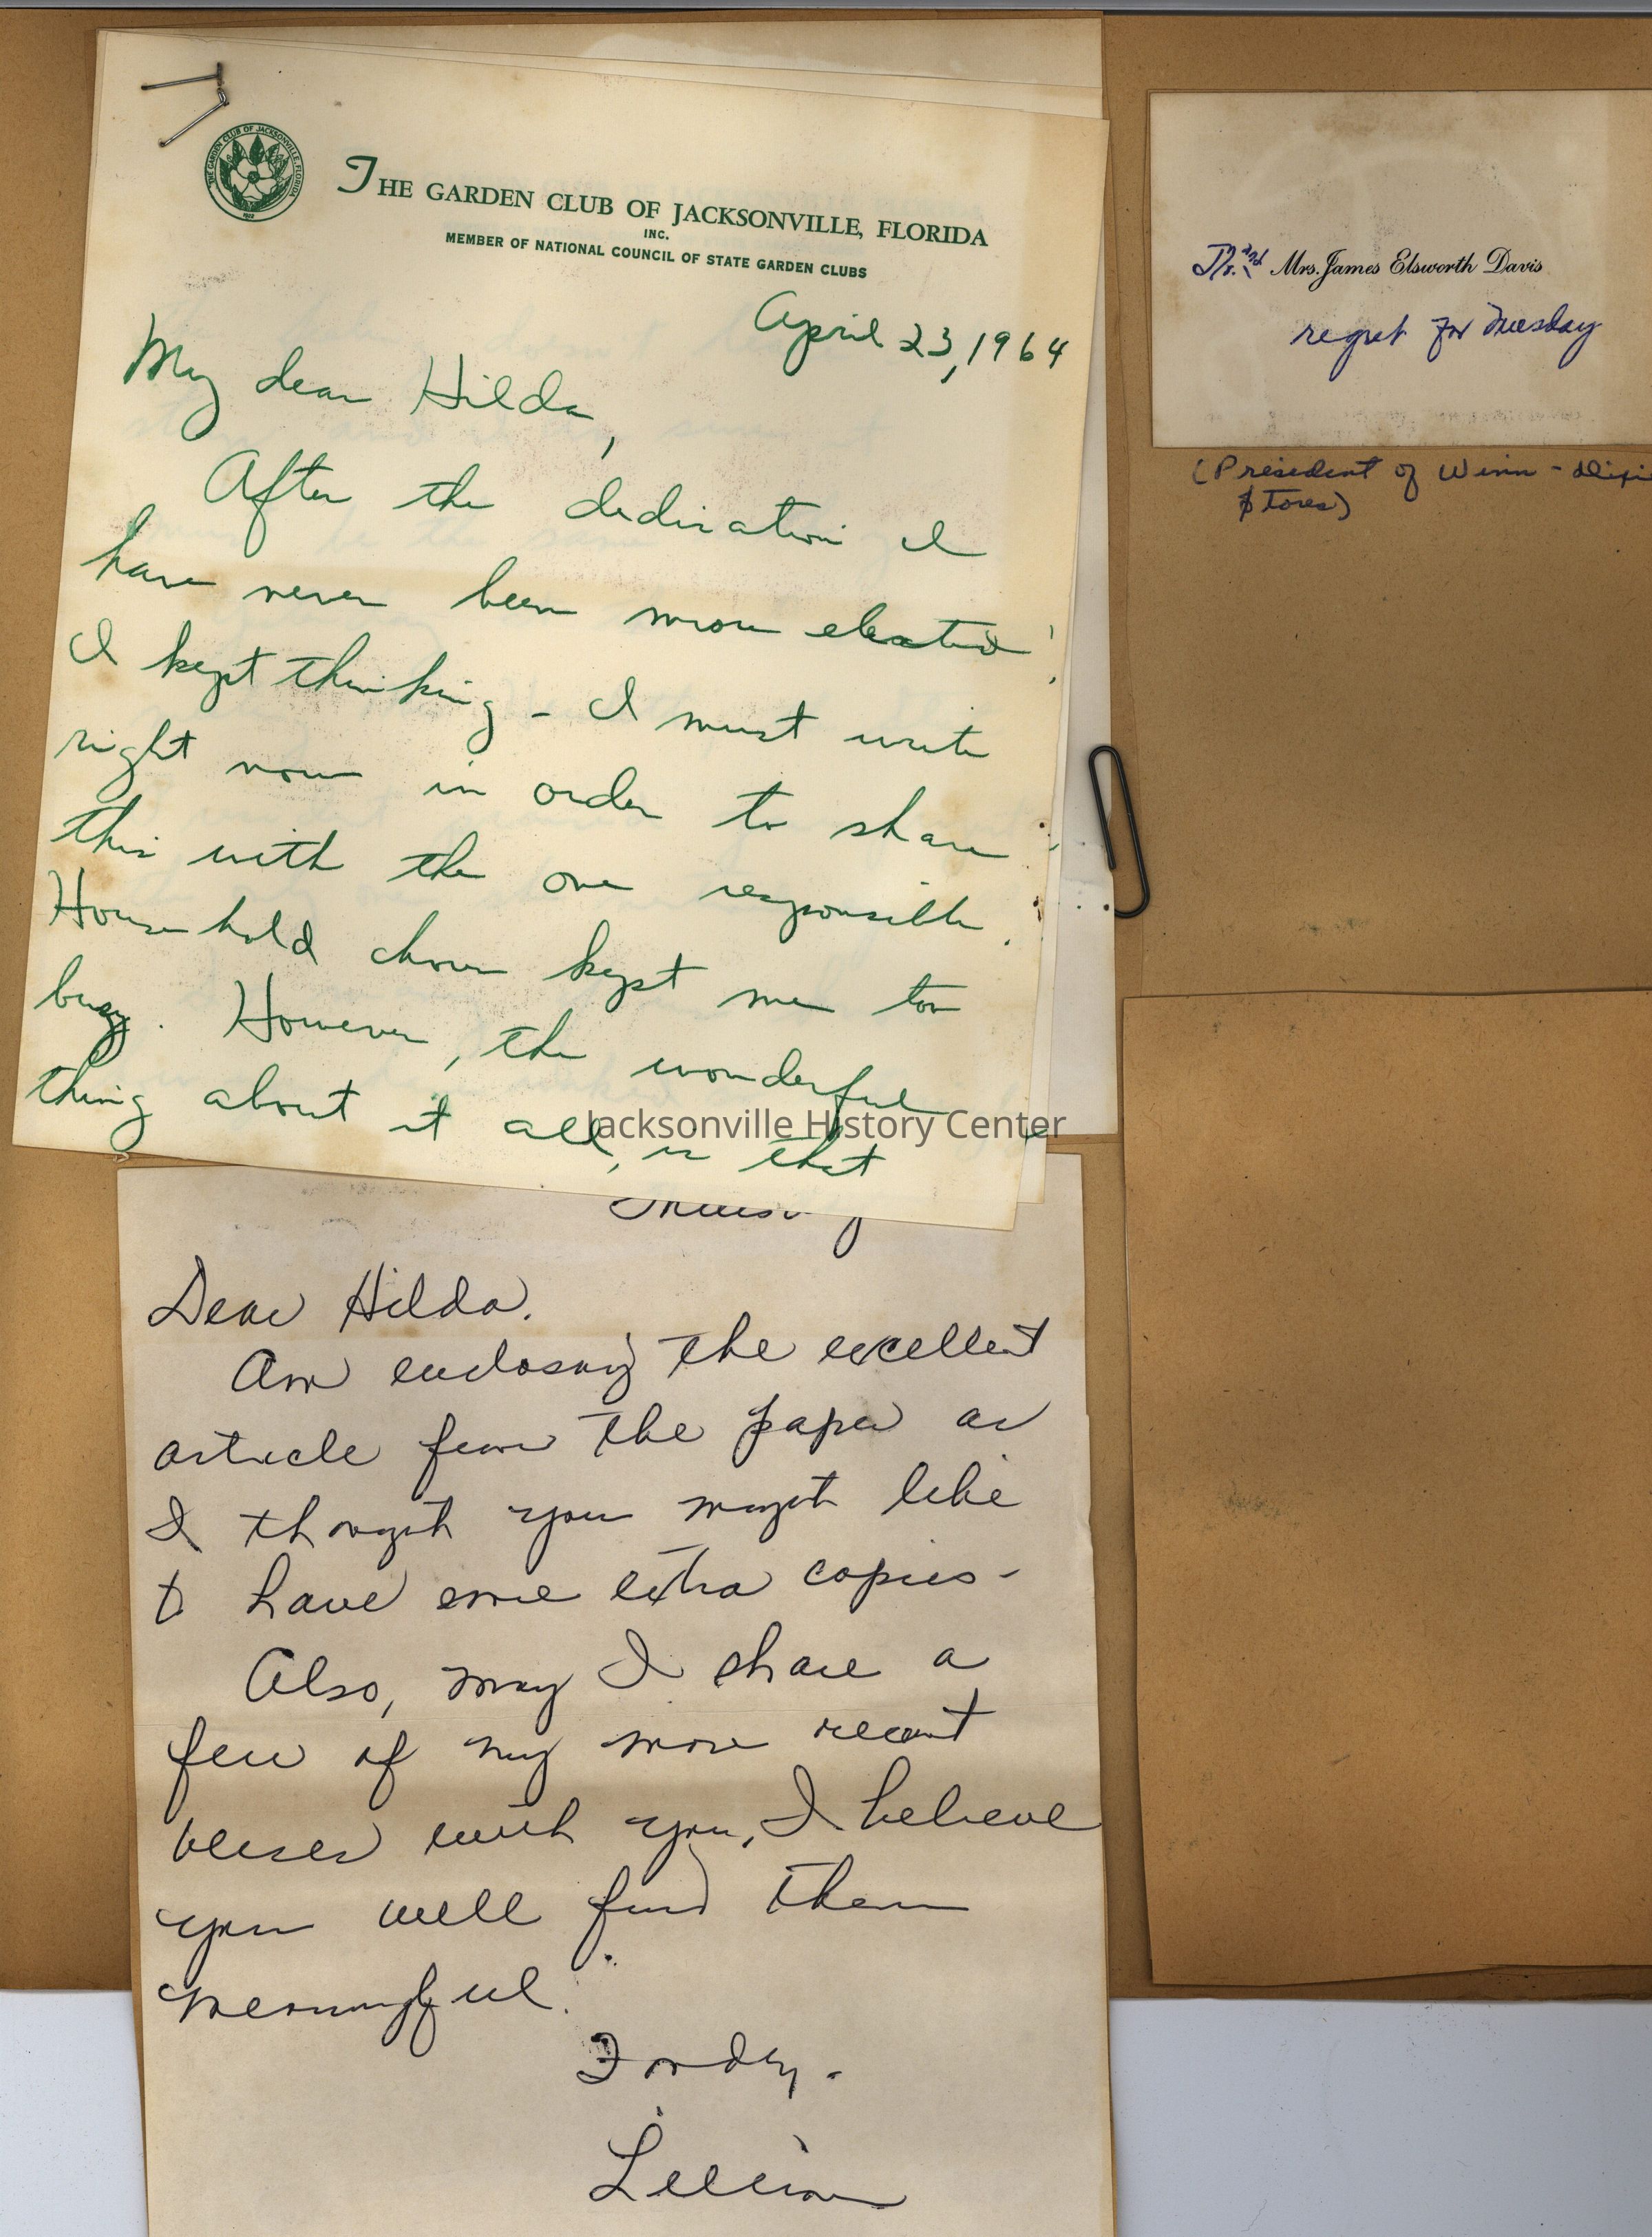 THE GARDEN CLUB OF JACKSONVILLE, FLORIDA
INC.
MEMBER OF NATIONAL COUNCIL OF STATE GARDEN CLUBS
THE GARDEN CLUB OF JACKSONVILLE, FLORIDA
1922
April 23, 1964
My dear Hilda,
After the dedication I
have never been more elated!
I kept thinking - I must write
right now in order to share
this with the one responsible.
Household chores kept me too
busy. However, the wonderful
thing about it all, is that
Jacksonville History Center
Thursday
Dear Hilda.
Am enclosing the excellent
article from the paper as
I thought you might like
to have some extra copies -
Also, may I share a
few of my more recent
verses with you, I believe
you will find them
meaningful.
Fondly -
Lillian
Mr. and Mrs. James Elsworth Davis
regret for Tuesday
(President of Winn-Dixie
Stores)